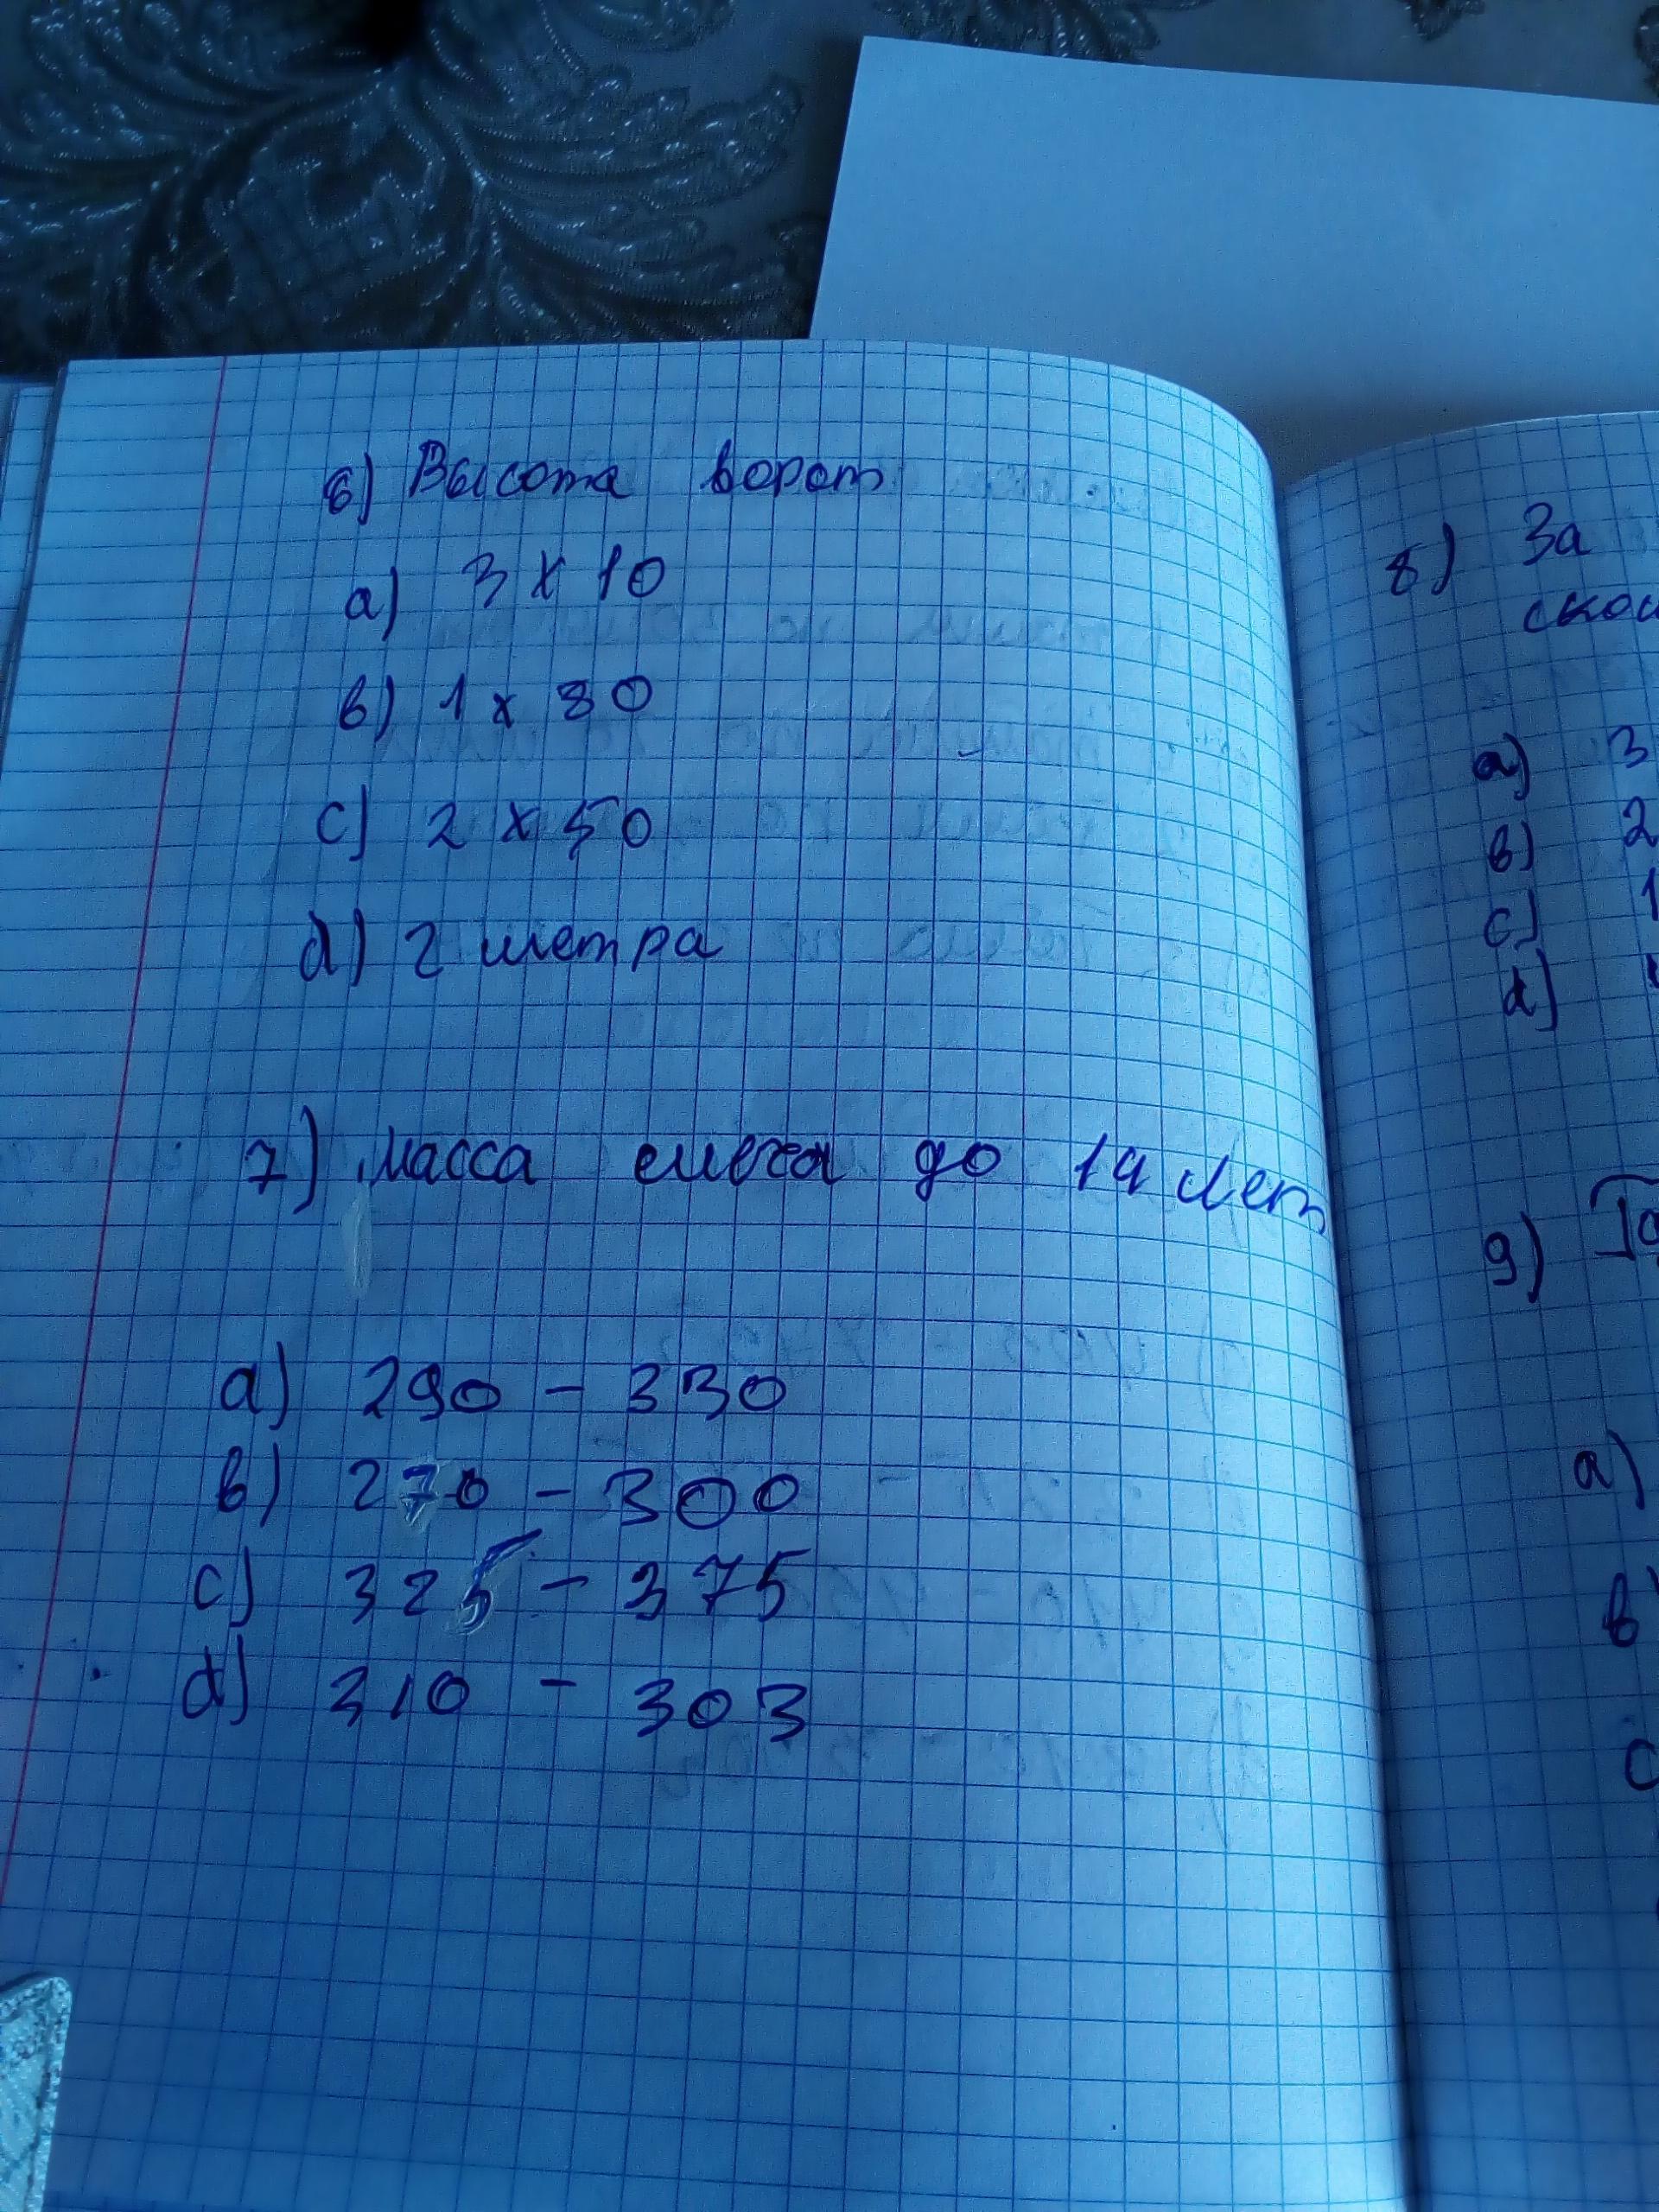 6) Высота ворот
a) 3 х 10
в) 1 х 80
c) 2 х 50
d) 2 метра
7) Масса мяча до 14 лет
a) 290 - 330
в) 270 - 300
c) 325 - 375
d) 310 - 303
8) За
a) 3
в) 2
c) 1
d)
9)
a)
в
c